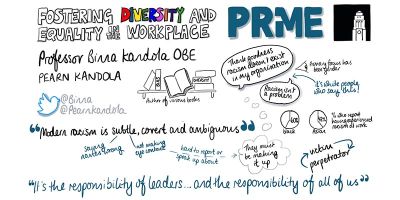 FOSTERING DIVERSITY AND
EQUALITY IN THE WORKPLACE
PRiME
Professor Binna Kandola OBE
PEARN KANDOLA
@Binna
@Pearnkandola
Author of various books
Thank goodness
racism doesn't exist in
my organisation
Racism isn't
a problem
focus has
been gender
it's white people
who say this!
"Modern racism is subtle, covert and ambiguous"
saying
not making
eye contact
hard to report or
speak up about
They must
be making it
up
victim
perpetrator
"It's the responsibility of leaders... and the responsibility of all of us"